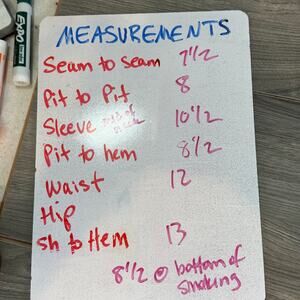 EXPO
MEASUREMENTS
Seam to Seam 7 1/2
Pit to Pit 8
Sleeve 10 1/2
Pit to hem 8 1/2
Waist 12
Hip
Sh to Hem 13
8 1/2 @ bottom of
smoking